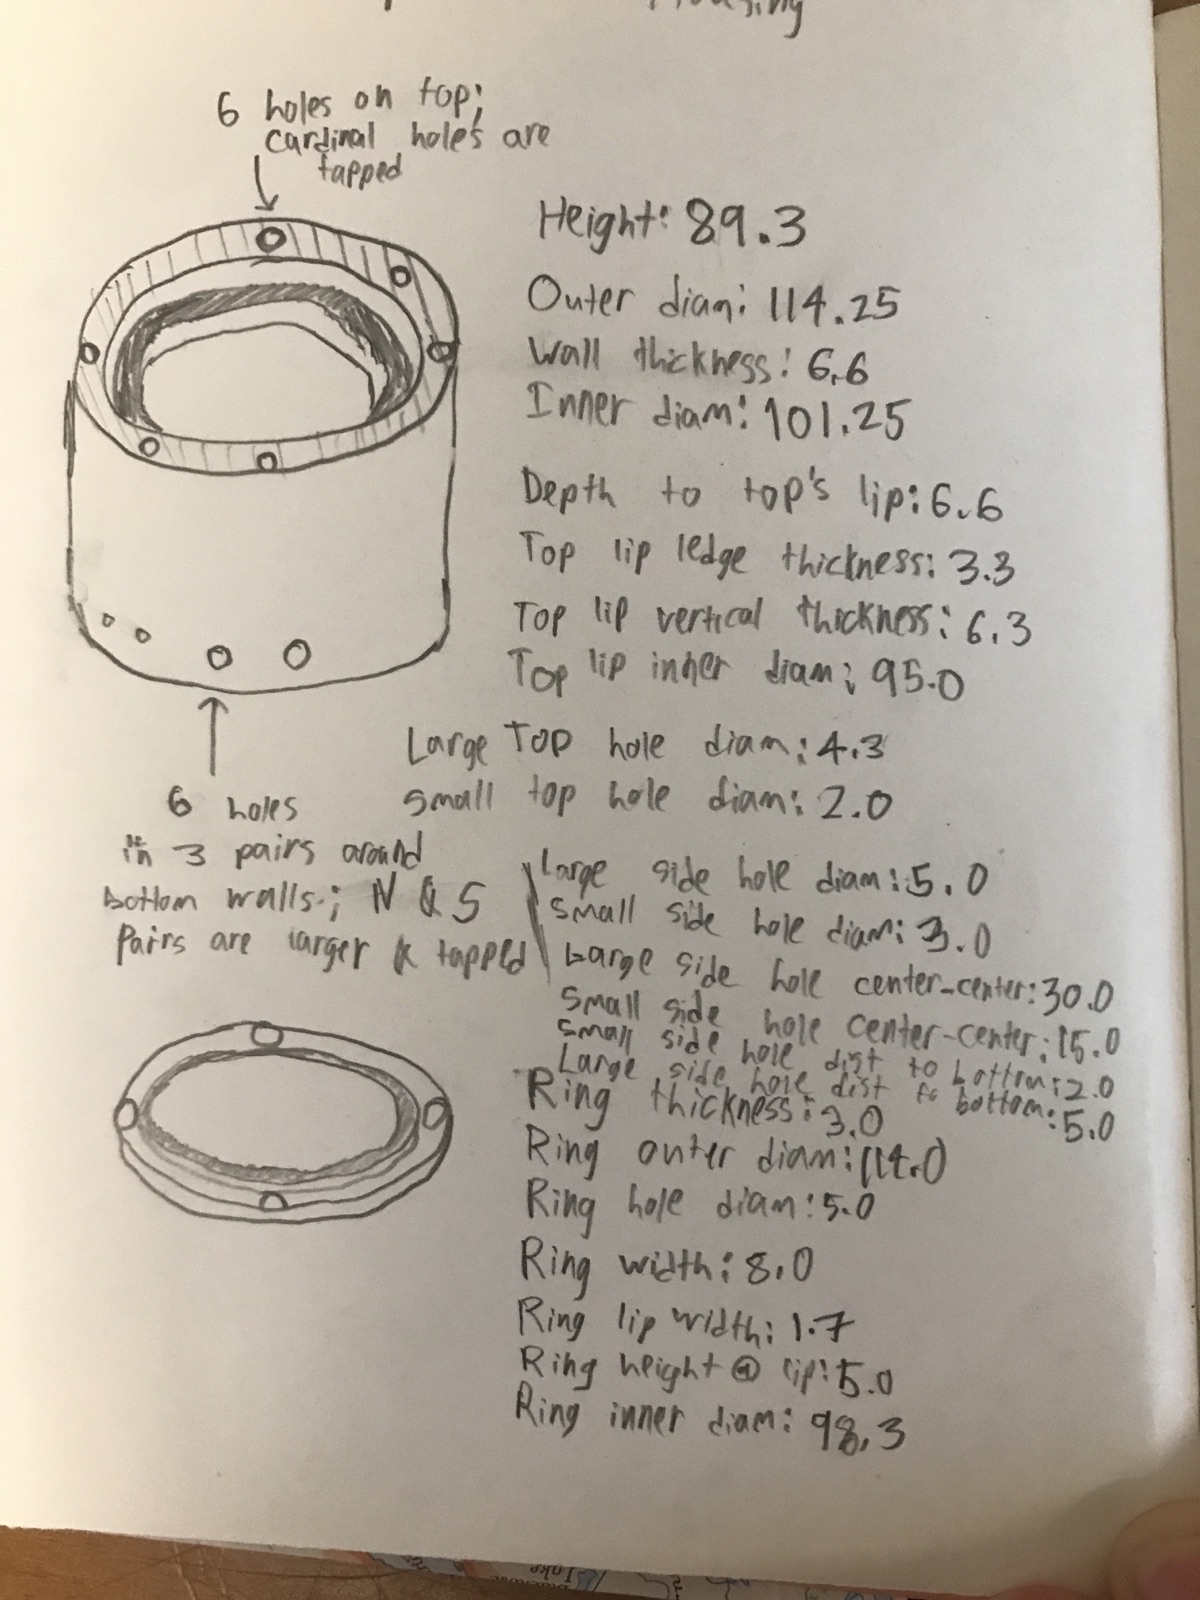 Housing
6 holes on top;
cardinal holes are
tapped
Height: 89.3
Outer diam: 114.25
Wall thickness: 6.6
Inner diam: 101.25
Depth to top's lip: 6.6
Top lip ledge thickness: 3.3
Top lip vertical thickness: 6.3
Top lip inner diam: 95.0
Large Top hole diam: 4.3
Small top hole diam: 2.0
6 holes
in 3 pairs around
bottom walls; N & S
Pairs are larger & tapped
Large side hole diam: 5.0
Small side hole diam: 3.0
Large side hole center-center: 30.0
Small side hole center-center: 15.0
Small side hole dist to bottom: 2.0
Large side hole dist to bottom: 5.0
Ring thickness: 3.0
Ring outer diam: 114.0
Ring hole diam: 5.0
Ring width: 8.0
Ring lip width: 1.7
Ring height @ lip: 5.0
Ring inner diam: 98.3
Lake